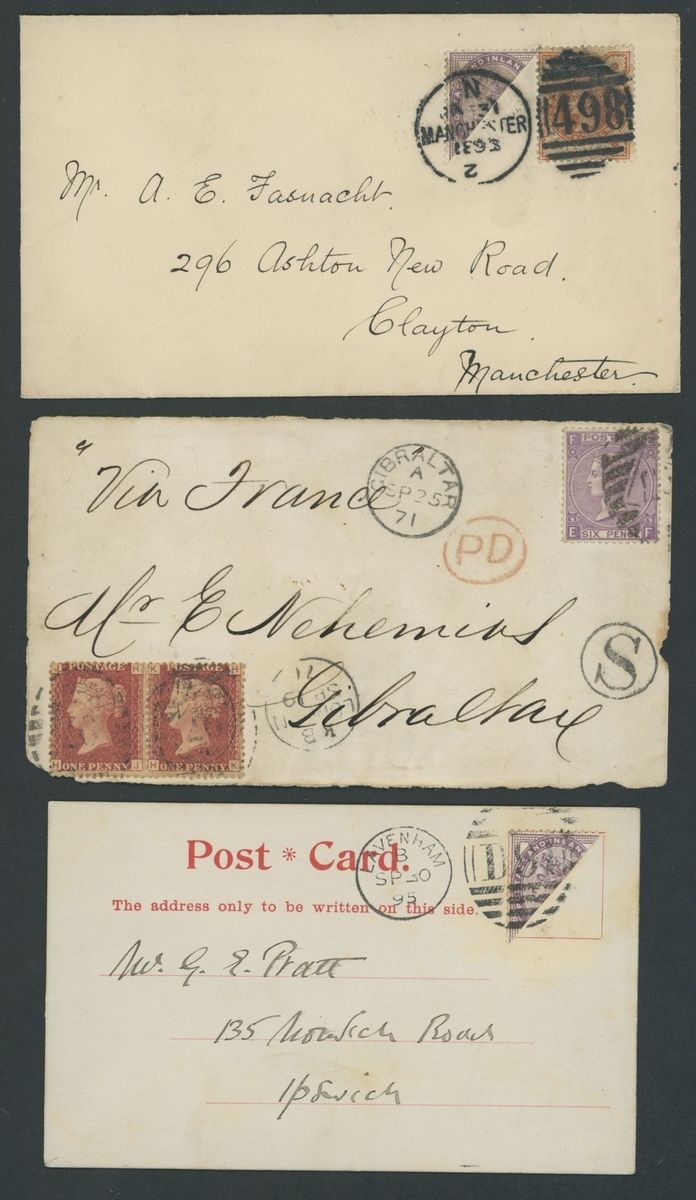 AGE AND INLAN
N
MANCHESTER
2
498
Mr. A. E. Fasnacht.
296 Ashton New Road.
Clayton.
Manchester.
"Via France"
GIBRALTAR
A
SP 25
71
PD
F POST F
E SIX PENCE F
Mr E Nehemias
S
Gibraltar
J POSTAGE H
H ONE PENNY J
K POSTAGE H
H ONE PENNY K
Post * Card.
LAVENHAM
B
SP 30
95
The address only to be written on this side.
AGE AND INLAN
Mr. G. E. Pratt
135 Norwich Road
Ipswich